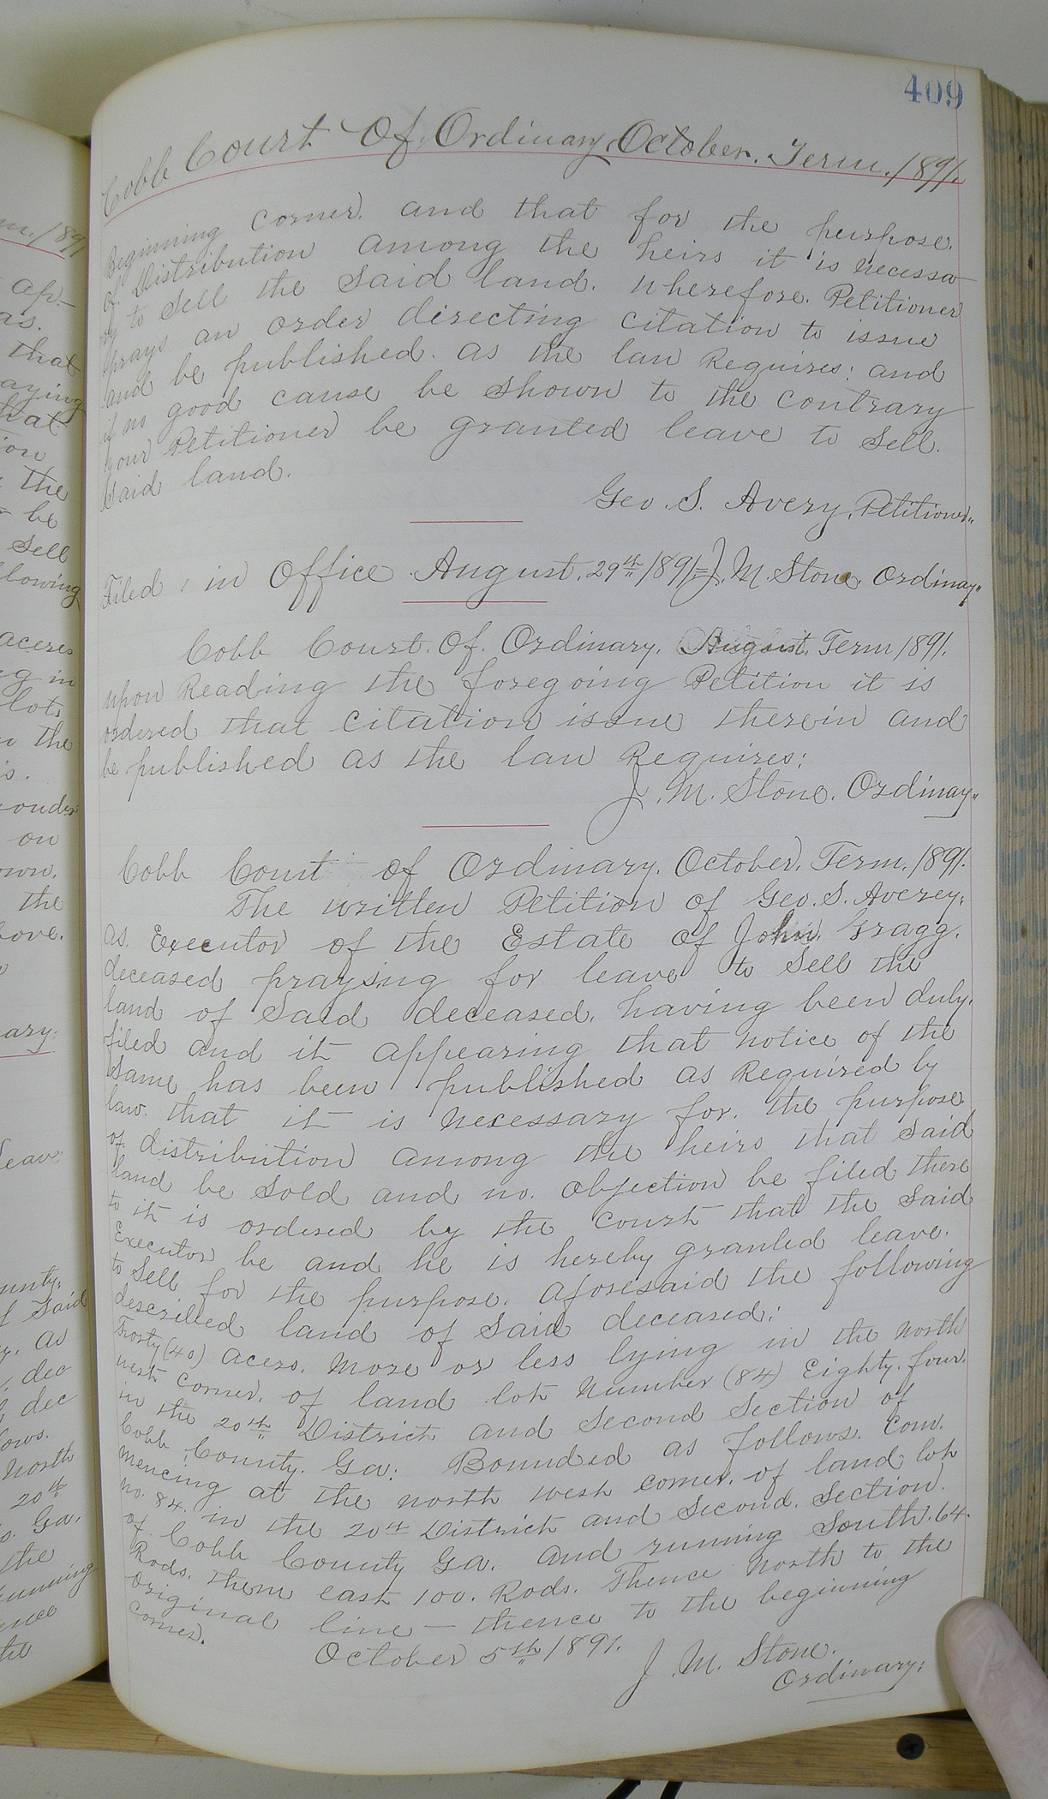 409
Cobb Court Of Ordinary, October. Term. 1891.
Beginning corner. and that for the purpose.
of Distribution among the heirs it is necessa
ry to sell the said land. wherefore. Petitioner
prays an order directing citation to issue
and be published. as the law Requires: and
if no good cause be shown to the contrary
your Petitioner be granted leave to sell.
said land.
Geo. S. Avery, Petitioner.
Filed in Office August. 29th 1891 = J. M. Stone, Ordinary.
Cobb Court. Of. Ordinary. August. Term 1891.
upon Reading the foregoing Petition it is
ordered that citation issue therein and
be published as the law Requires:
J. M. Stone. Ordinary.
Cobb Court of Ordinary. October. Term. 1891.
The written Petition of Geo. S. Averey.
as. Executor of the Estate of John Gragg.
deceased praysing for leave to Sell the
land of said deceased. having been duly.
filed and it appearing that notice of the
same has been published as Required by
law. that it is necessary for. the purpose
of distribution among the heirs that said
land be sold and no. objection be filed there
to it is ordered by the court that the said
Executor be and he is hereby granted leave.
to sell for the purpose. aforesaid the following
described land of said deceased:
Frorty (40) acers. more or less lying in the north
west corner. of land lot number (84) Eighty. four.
in the 20th District and Second Section of
Cobb County. Ga: Bounded as follows. Com.
mencing at the north west corner. of land lot
no. 84. in the 20th District and second. section.
of Cobb County Ga. and running South. 64.
Rods. them east 100. Rods. Thence north to the
original line — thence to the beginning
corner.
October 5th 1891. J. M. Stone.
Ordinary:
ap.
as.
that
aying
hat
ion
the
be
sell
llowing
aceres
g in
lots
the
on
own.
the
bove.
ary.
leave
unty.
said
as
dec
dec
lows.
North
20th
Ga.
the
unning
ence
the